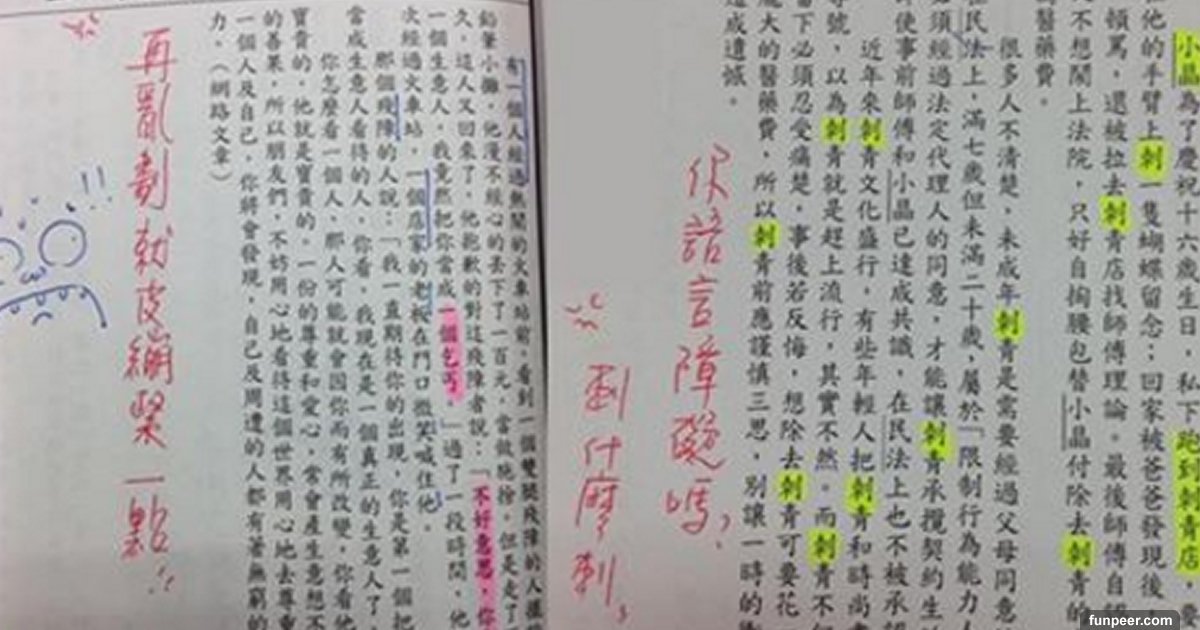 小晶為了慶祝十六歲生日，私下跑到刺青店，
在他的手臂上刺一隻蝴蝶留念；回家被爸爸發現後，
頓罵，還被拉去刺青店找師傅理論。最後師傅自
不想鬧上法院，只好自掏腰包替小晶付除去刺青的
醫藥費。
很多人不清楚，未成年刺青是需要經過父母同意
在民法上，滿七歲但未滿二十歲，屬於「限制行為能力人
必須經過法定代理人的同意，才能讓刺青承攬契約生
使事前師傅和小晶已達成共識，在民法上也不被承
近年來刺青文化盛行，有些年輕人把刺青和時尚
等號，以為刺青就是趕上流行，其實不然。而刺青不
當下必須忍受痛楚，事後若反悔，想除去刺青可要花
龐大的醫藥費，所以刺青前應謹慎三思，別讓一時的
造成遺憾。
你語言障礙嗎？
刺什麼刺，
有一個人經過熱鬧的火車站前，看到一個雙腿殘障的人擺
鉛筆小攤，他漫不經心的丟下了一百元，當做施捨。但是走了
久，這人又回來了，他抱歉的對這殘障者說：「不好意思，你
一個生意人，我竟然把你當成一個乞丐。」過了一段時間，他
次經過火車站，一個店家的老闆在門口微笑喊住他。
那個殘障的人說：「我一直期待你的出現，你是第一個把
當成生意人看待的人，你看，我現在是一個真正的生意人了。
你怎麼看一個人，那人可能就會因你而有所改變，你看他
寶貴的，他就是寶貴的。一份的尊重和愛心，常會產生意想不
的善果，所以朋友們，不妨用心地看待這個世界用心地去尊重
一個人及自己，你將會發現，自己及周遭的人都有著無窮的
力。（網路文章）
再亂劃就皮繃緊一點!!
!!
funpeer.com